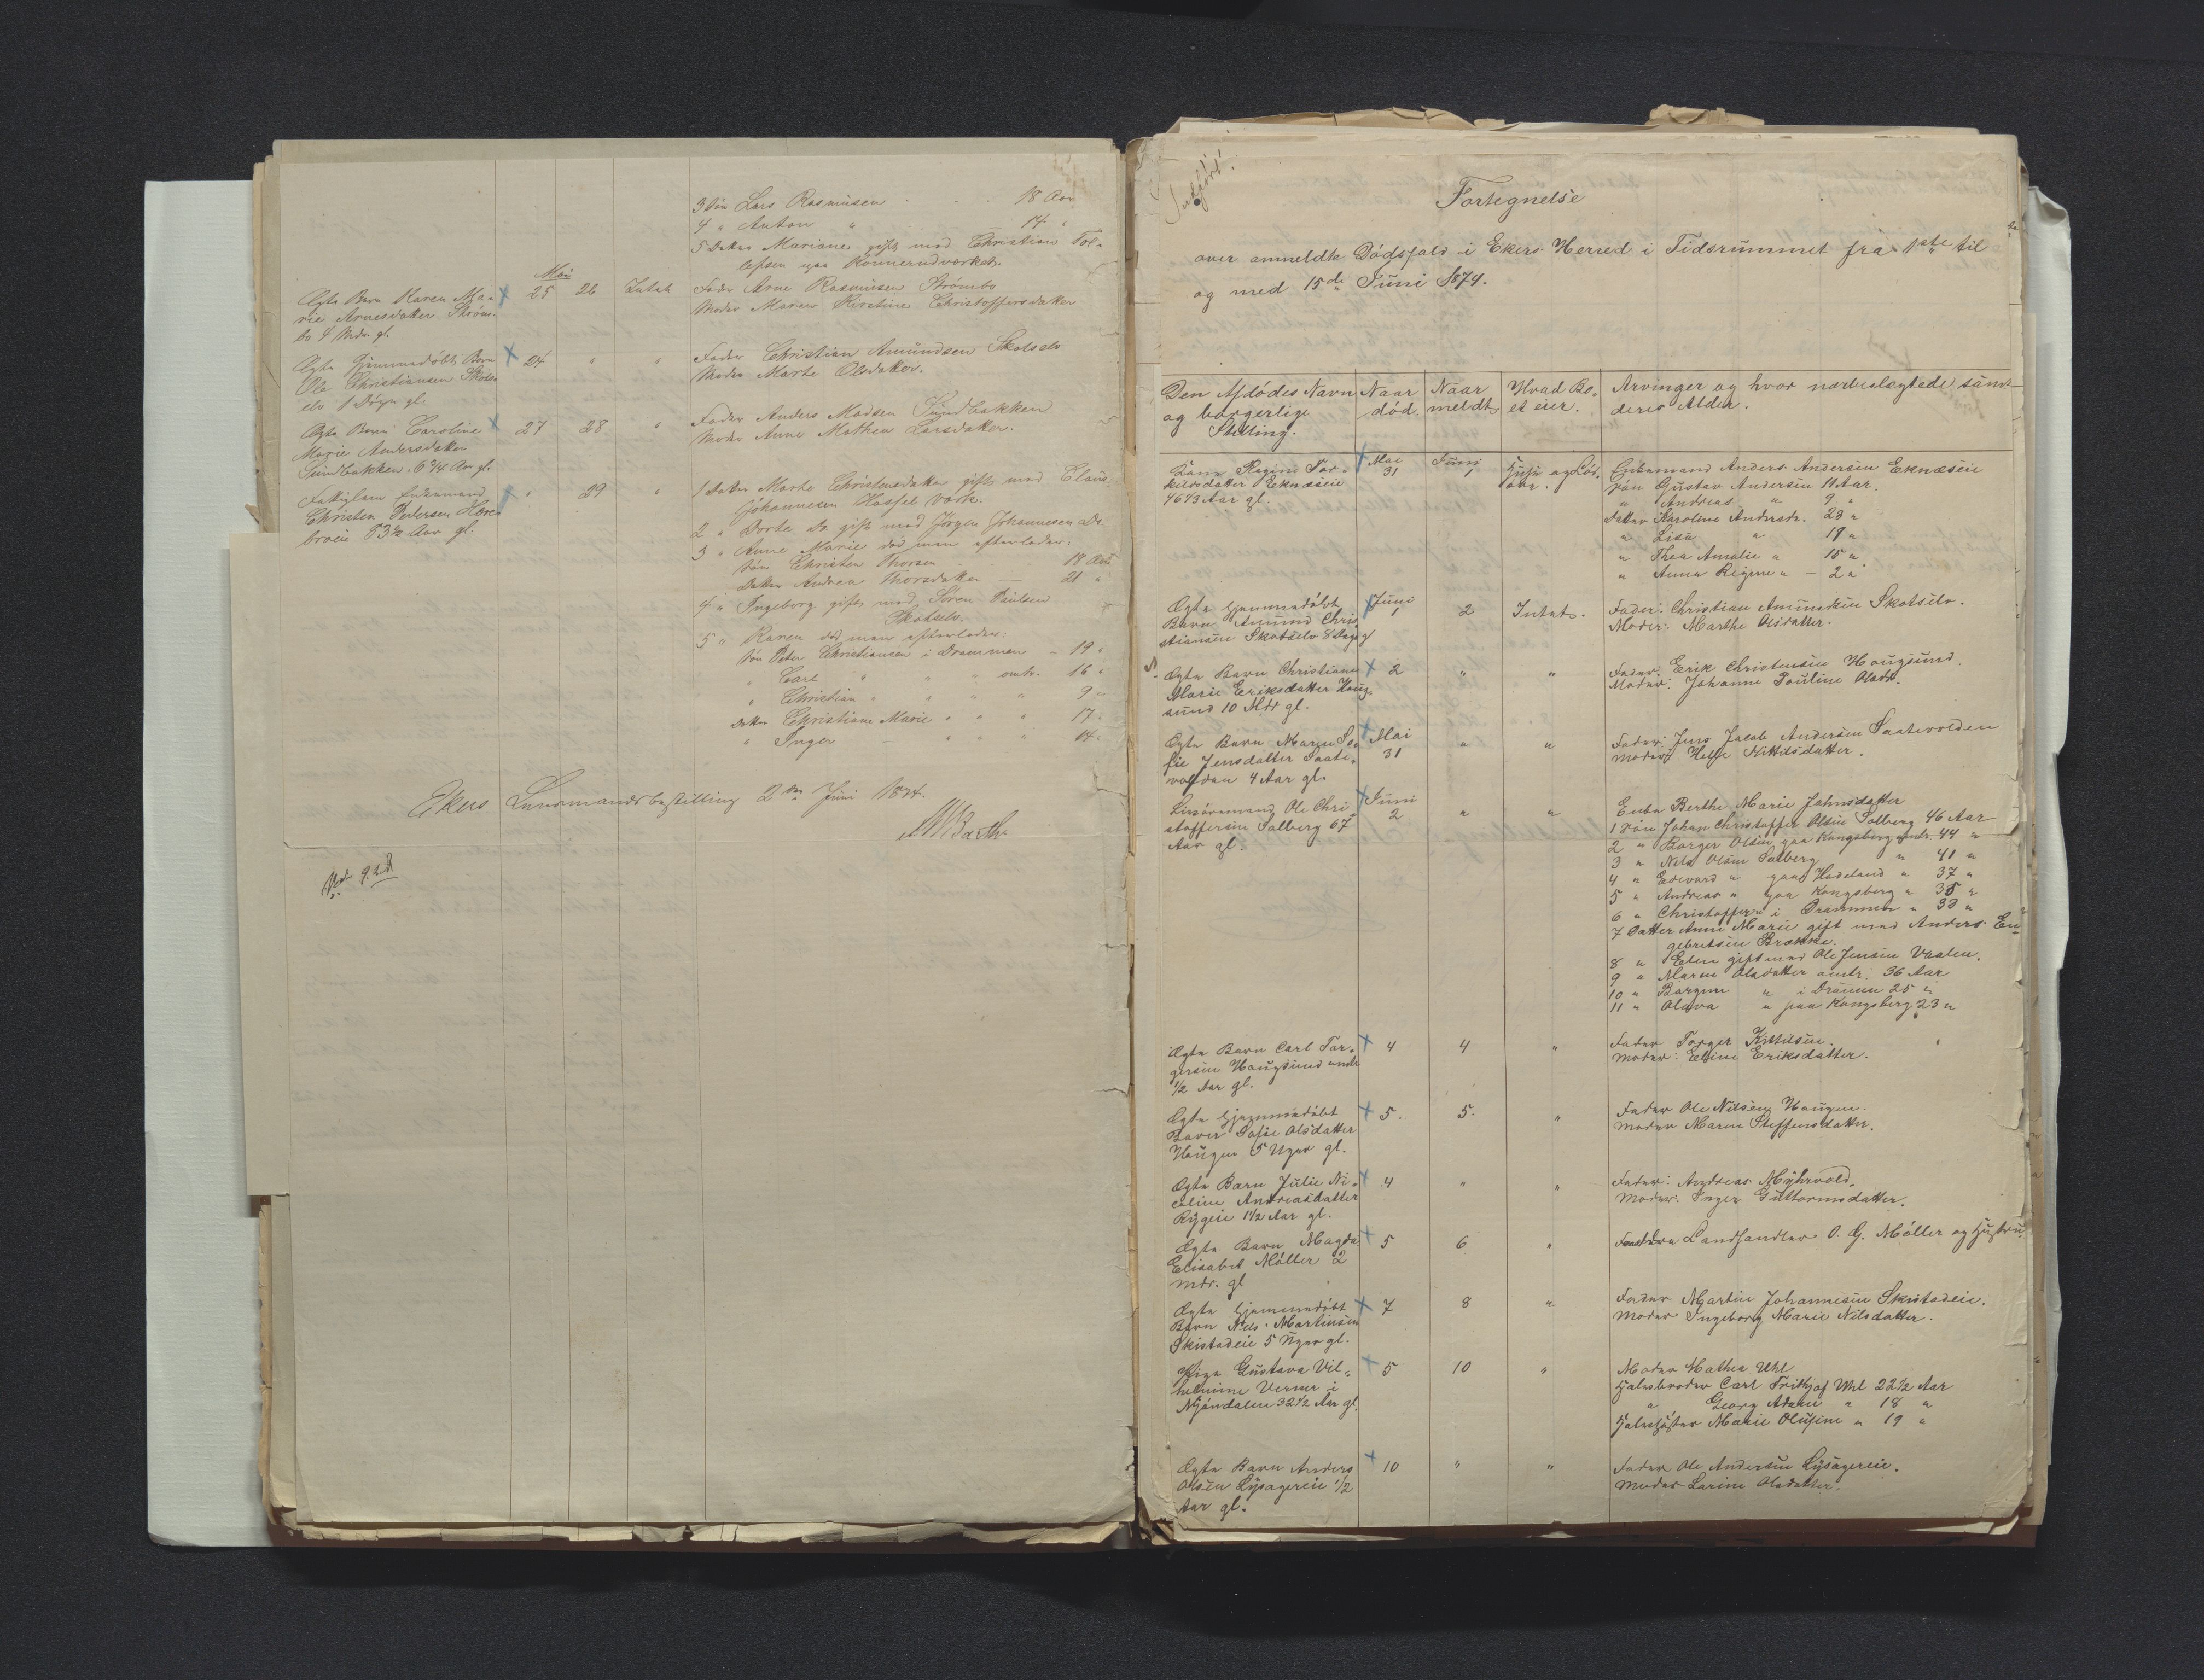 3 Søn Lars Rasmusen 18 Aar
4 " Anton " 14 "
5 Datter Mariane gift med Christian Tol-
lefsen paa Konnerudværket.
Mai
Ægte Barn Karen Ma- 25 26 Intet Fader Arne Rasmusen Strømbo
rie Arnesdatter Strøm- Moder Maren Kirstine Christoffersdatter
bo 4 Mdr. gl.
Ægte hjemmedøbt Barn 24 " " Fader Christian Amundsen Skotselv
Ole Christiansen Skots- Moder Marte Olsdatter.
elv 1 Døgn gl.
Ægte Barn Caroline 27 28 " Fader Anders Madsen Sundbakken
Marie Andersdatter Moder Anne Mathea Larsdatter.
Sundbakken 6 3/4 Aar gl.
Fattiglem Enkemand " 29 " 1 Datter Marte Christensdatter gift med Claus
Christen Pedersen Johannesen Hassel Værk.
83 1/2 Aar gl. 2 " Dorte do gift med Jørgen Johannesen Do
3 " Anne Marie død men efterlader:
Søn Christen Thorsen 18 Aar
Datter Andrea Thorsdatter — 21 "
4 " Ingeborg gift med Søren Paulsen
Skotselv.
5 " Karen død men efterlader:
Søn Peter Christiansen i Drammen — 19 "
" Carl " " " omtr. 16 "
" Christian " " " " 9 "
Datter Christiane Marie " " " 17 "
" Inger — " " " 14 "
Ekers Lensmandsbestilling 2den Juni 1874.
Fortegnelse
over anmeldte Dødsfald i Ekers Herred i Tidsrummet fra 1ste til
og med 15de Juni 1874.
Den Afdødes Navn og borgerlige Stilling. Naar død. Naar meldt. Hvad Bo- et eier. Arvinger og hvor nærbeslægtede samt deres Alder.
Kone Regine Tor- Mai 31 Juni 1 Huse og Løs- Enkemand Anders Andersen Eknæseie
kilsdatter Eknæseie øre. Søn Gustav Andersen 11 Aar.
46 1/3 Aar gl. " Andreas " 9 "
Datter Karoline Andersdr. 23 "
" Lisa " 19 "
" Thea Amalie " 15 "
" Anna Regine " — 2 "
Ægte hjemmedøbt Juni 1 2 Intet. Fader: Christian Amundsen Skotselv.
Barn Amund Chri- Moder: Marthe Olsdatter.
stiansen Skotselv 8 Dage gl
Ægte Barn Christiane 2 " " Fader: Erik Christensen Hougsund.
Marie Eriksdatter Houg- Moder: Johanne Pauline Olsdr.
sund 10 Mdr gl.
Ægte Barn Maren So- Mai 31 " " Fader: Jens Jacob Andersen Saatevolden
fie Jensdatter Saate- Moder: Helje Kittilsdatter.
volden 4 Aar gl.
Livøremand Ole Chri- Juni 2 " " Enke Berthe Marie Johnsdatter
stoffersen Solberg 67 1 Søn Johan Christoffer Olsen Solberg 46 Aar
Aar gl. 2 " Borger Olsen paa Kongsberg omtr. 44 "
3 " Nels Olsen Solberg " 41 "
4 " Edevard " paa Hadeland " 37 "
5 " Andreas " paa Kongsberg " 35 "
6 " Christoffer " i Drammen " 33 "
7 Datter Anne Marie gift med Anders En-
gebretsen Brække.
8 " Elen gift med Ole Jensen Vaalen.
9 " Maren Olsdatter omtr. 36 Aar
10 " Borgine " i Drammen 25 "
11 " Olava " paa Kongsberg 23 "
Ægte Barn Carl Tor- 4 4 " Fader Torger Kittilsen.
gersen Hougsund omtr. Moder: Eline Eriksdatter.
1/2 Aar gl.
Ægte hjemmedøbt 5. 5. " Fader Ole Nilsen Haugen.
Barn Sofie Olsdatter Moder Maren Steffensdatter.
Haugen 5 Uger gl.
Ægte Barn Julie Ni- 4 " " Fader: Andreas Myhrvold.
coline Andreasdatter Moder: Inger Guttormsdatter.
Rygeie 1 1/2 Aar gl.
Ægte Barn Magda 5 6 " Forældre Landhandler O. G. Møller og Hustru.
Elisabet Møller 2
Mdr. gl
Ægte hjemmedøbt 7 8 " Fader Martin Johannesen Skistadeie.
Barn Nils Martinsen Moder Ingeborg Marie Nilsdatter.
Skistadeie 5 Uger gl.
Pige Gustava Vil- 5 10 " Moder Mathea Uhl
helmine Verner i Halvbroder Carl Frithjof Uhl 22 1/2 Aar
Mjøndalen 32 1/2 Aar gl. " Georg Adam " 18 "
Halvsøster Marie Olufine " 19 "
Ægte Barn Anders 10 " " Fader Ole Andersen Lysagereie.
Olsen Lysagereie 1/2 Moder Larine Olsdatter.
Aar gl.